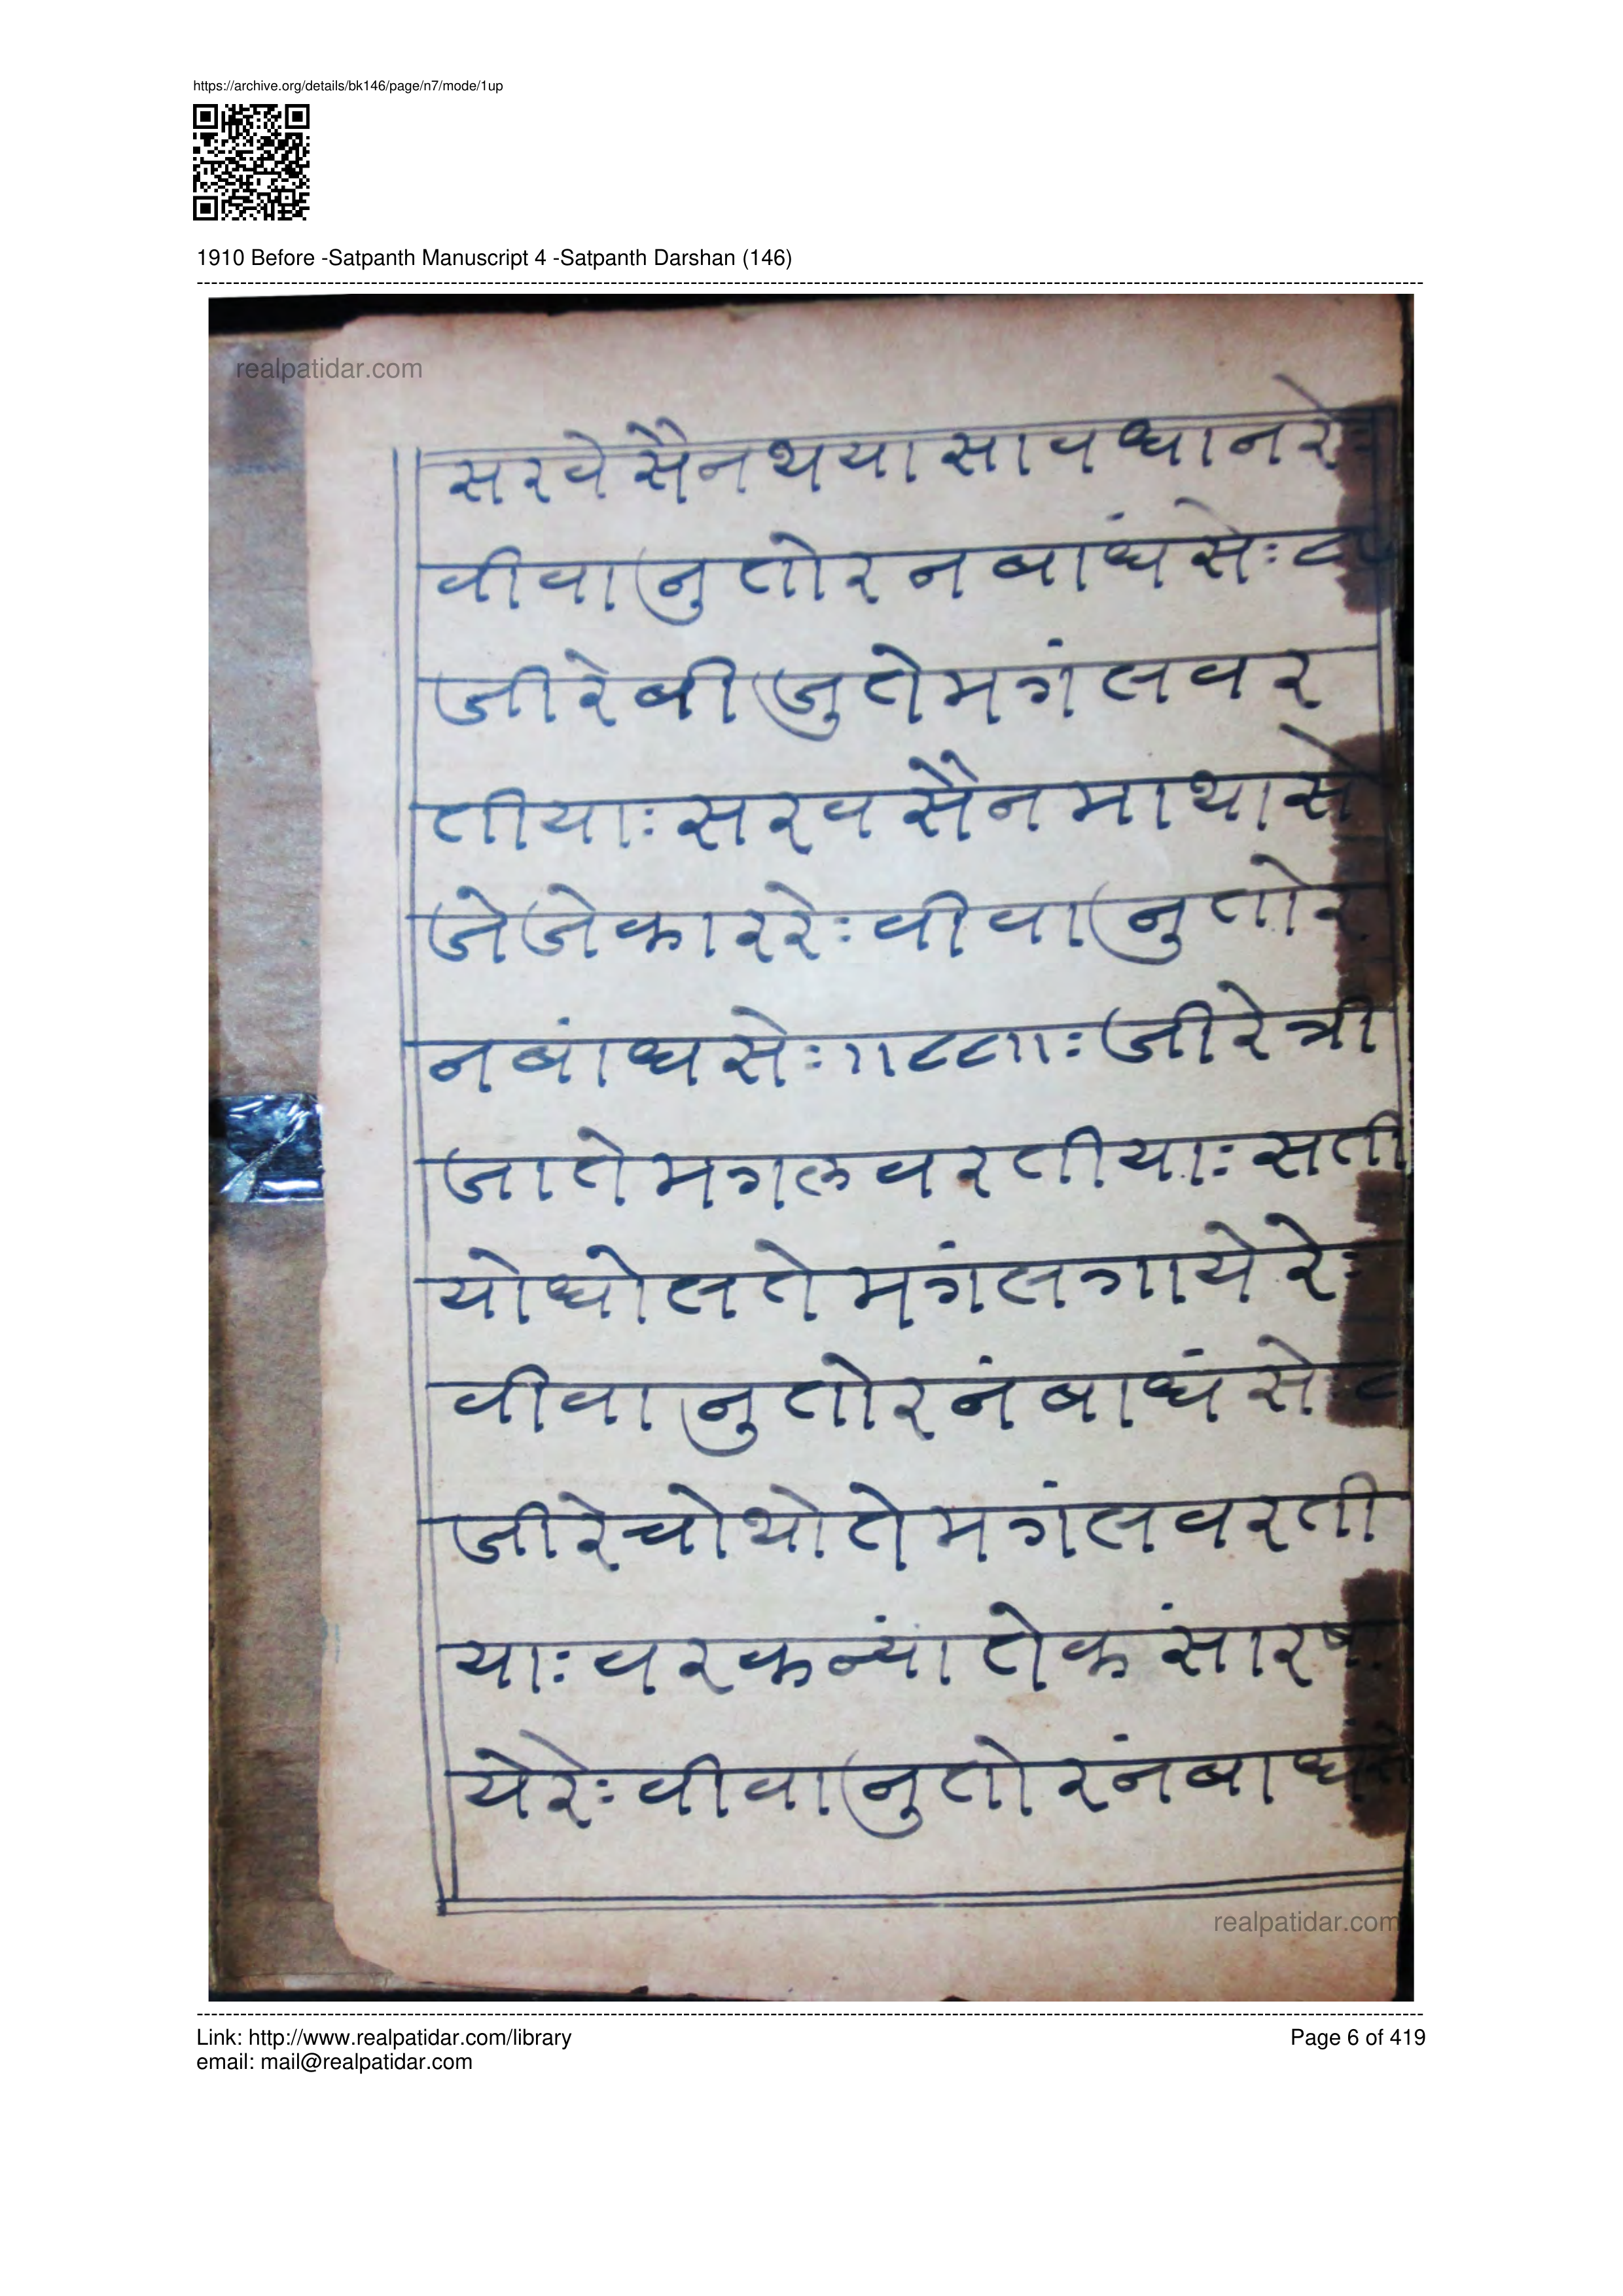 https://archive.org/details/bk146/page/n7/mode/1up
1910 Before -Satpanth Manuscript 4 -Satpanth Darshan (146)
realpatidar.com
सरवे सैन थया सावधान रे
वीवानु तोरन बाधं सेः
जीरे बीजु ते मगंल वर
तीयाः सरव सैन मा थासे
जेजेकार रेः वीवानु तोर
न बांध सेः जीरे त्री
जा ते मगल वरतीयाः सती
यो धोल ते मगंल गाये रेः
वीवानु तोरनं बाधं से
जीरे चोथो ते मगंल वरती
याः वर कन्यां ते कंसार
ये रेः वीवानु तोरनं बाधं
realpatidar.com
Link: http://www.realpatidar.com/library
Page 6 of 419
email: mail@realpatidar.com